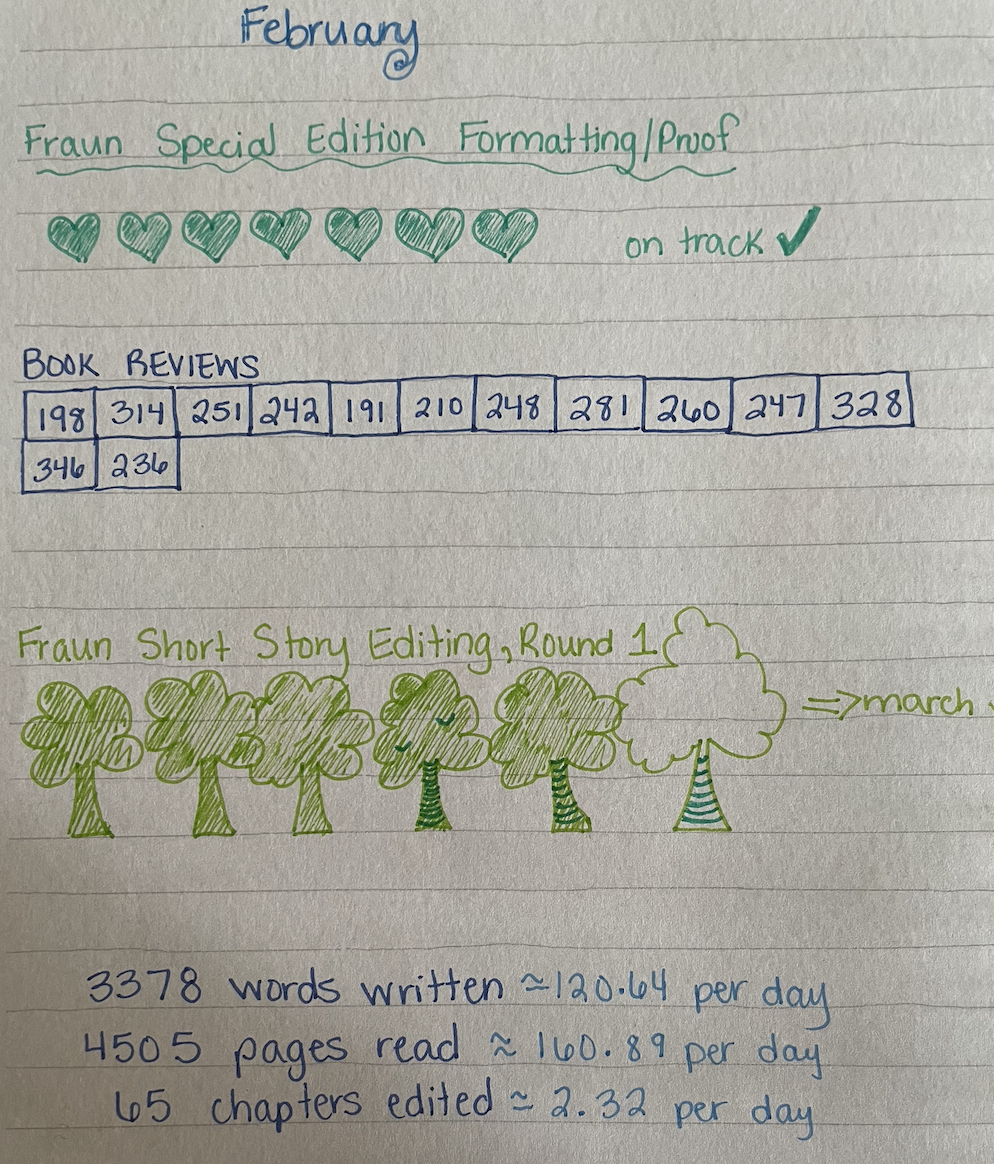 February
Fraun Special Edition Formatting/Proof
on track ✓
BOOK REVIEWS
198 314 251 242 191 210 248 281 260 247 328
346 236
Fraun Short Story Editing, Round 1
⇒ march
3378 words written ≈120.64 per day
4505 pages read ≈ 160.89 per day
65 chapters edited ≈ 2.32 per day